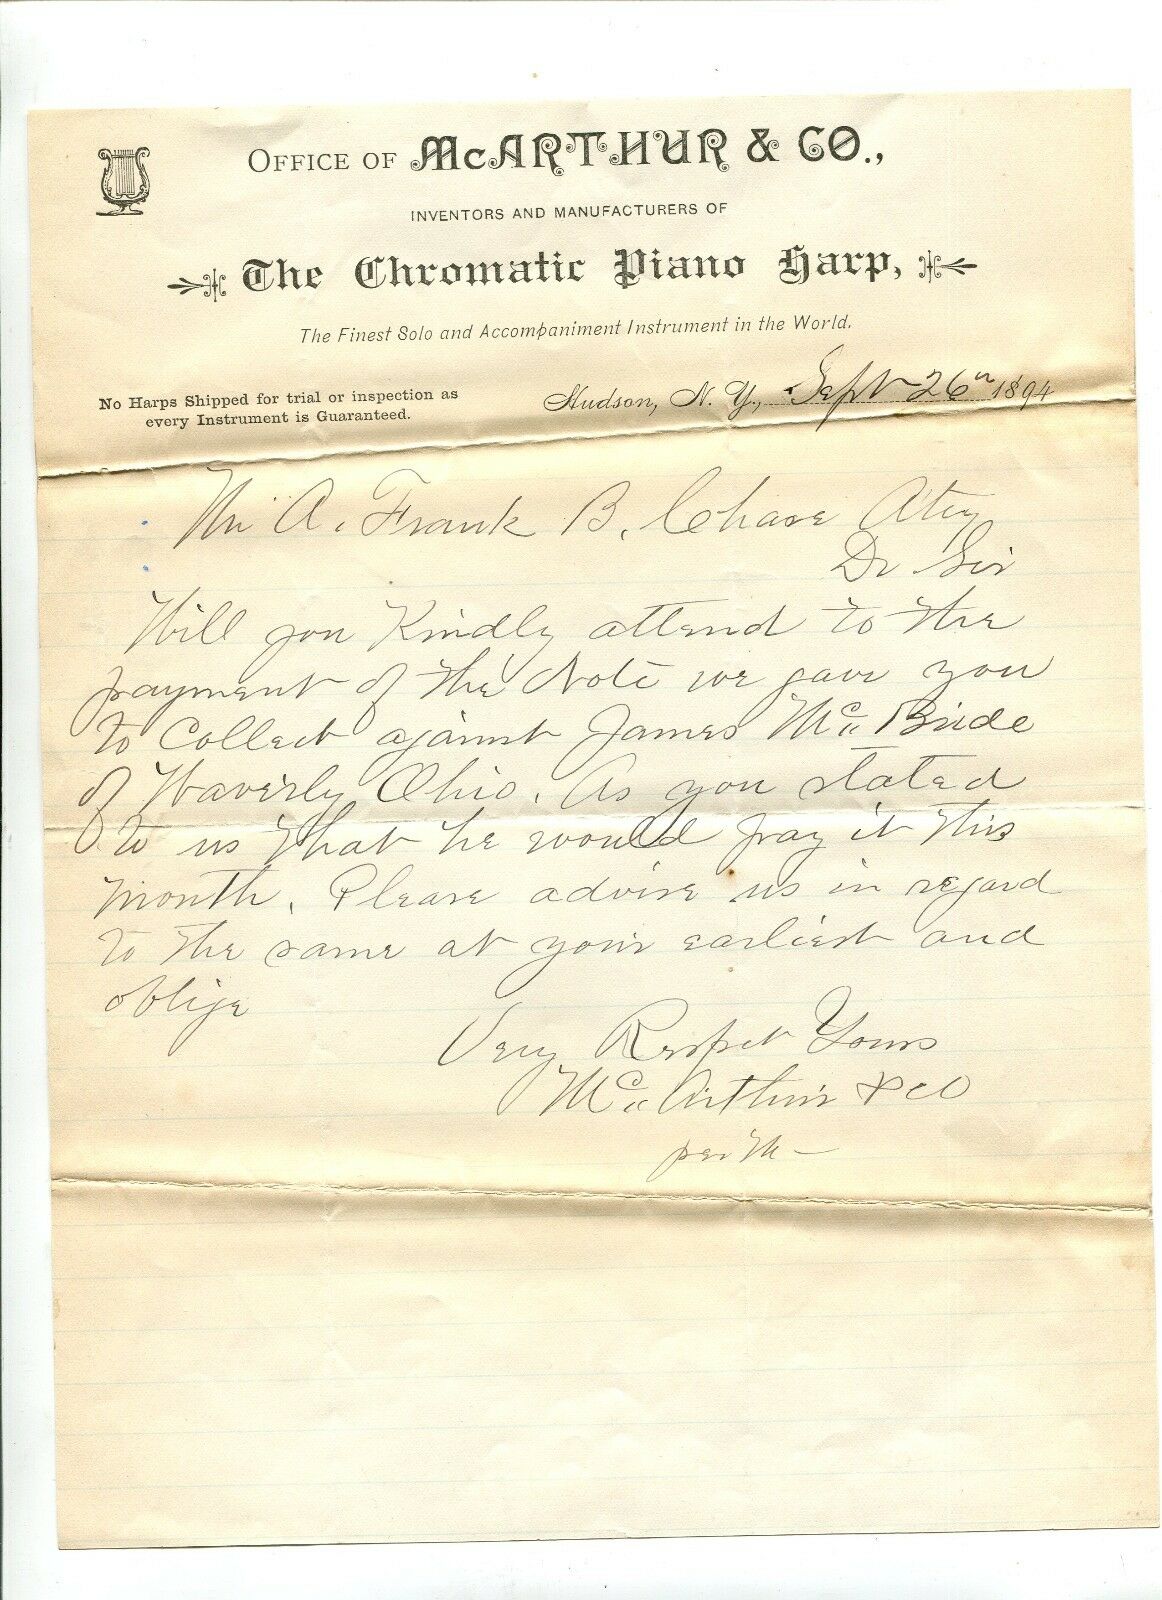 OFFICE OF McARTHUR & CO.,
INVENTORS AND MANUFACTURERS OF
The Chromatic Piano Harp,
The Finest Solo and Accompaniment Instrument in the World.
No Harps Shipped for trial or inspection as
every Instrument is Guaranteed.
Hudson, N. Y., Sept 26th 1894
Mr A. Frank B. Chase Aty
Dr Sir
Will you Kindly attend to the
payment of the Note we gave you
to Collect against James Mc Bride
of Waverly Ohio. As you stated
to us that he would pay it this
month. Please advise us in regard
to the same at your earliest and
oblige
Very Respct Yours
Mc Arthur & Co
per M